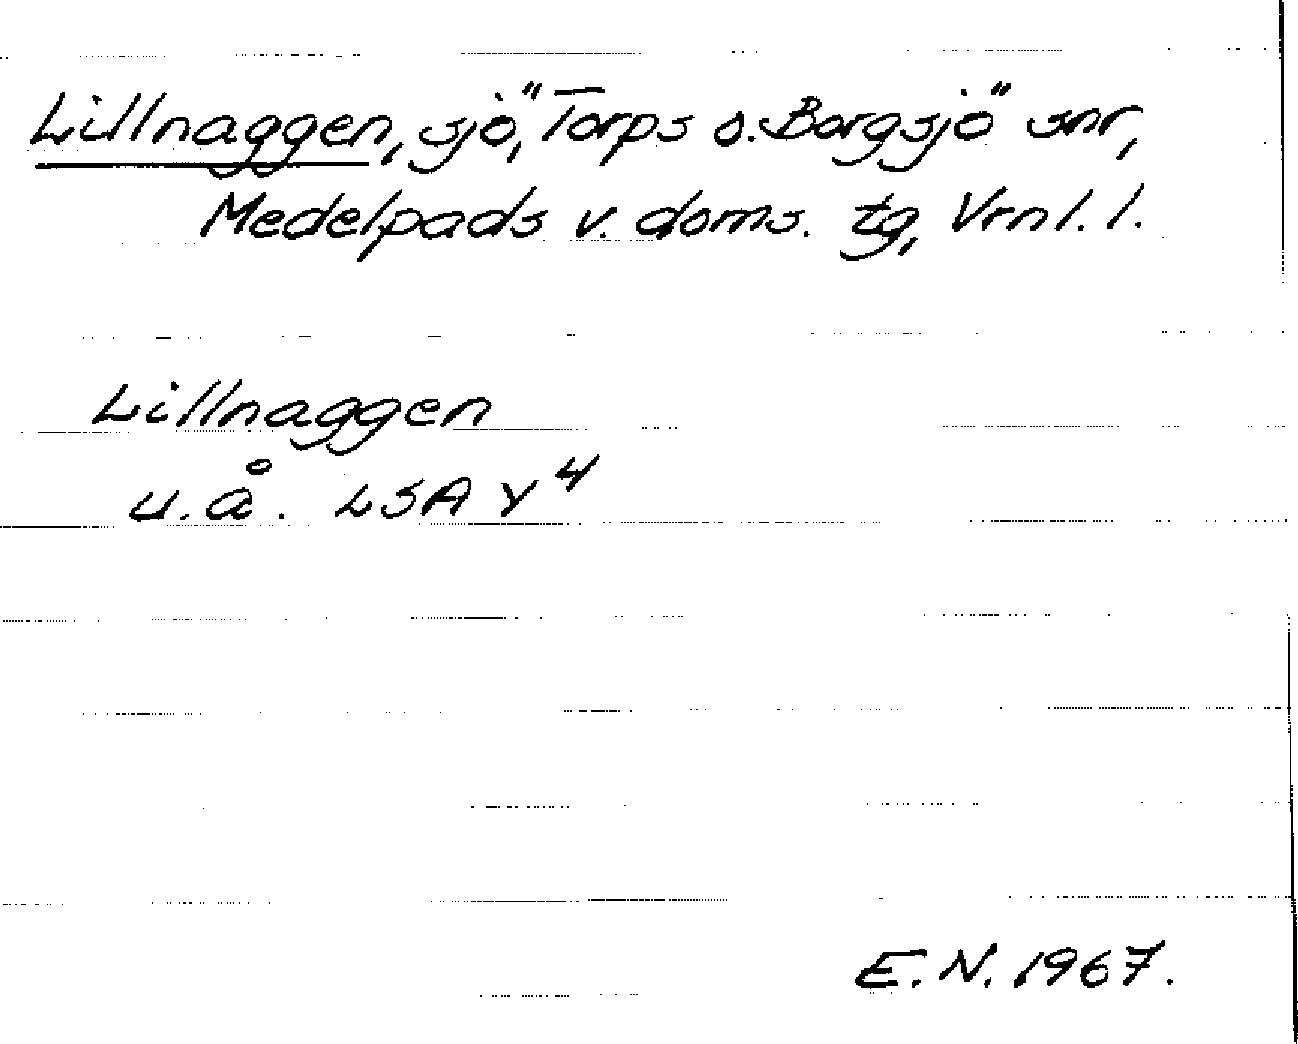 Lillnaggen, sjö, "Torps o. Borgsjö" snr,
Medelpads v. doms. tg, Vrnl. l.
Lillnaggen
u.å. LSA Y4
E.N. 1967.